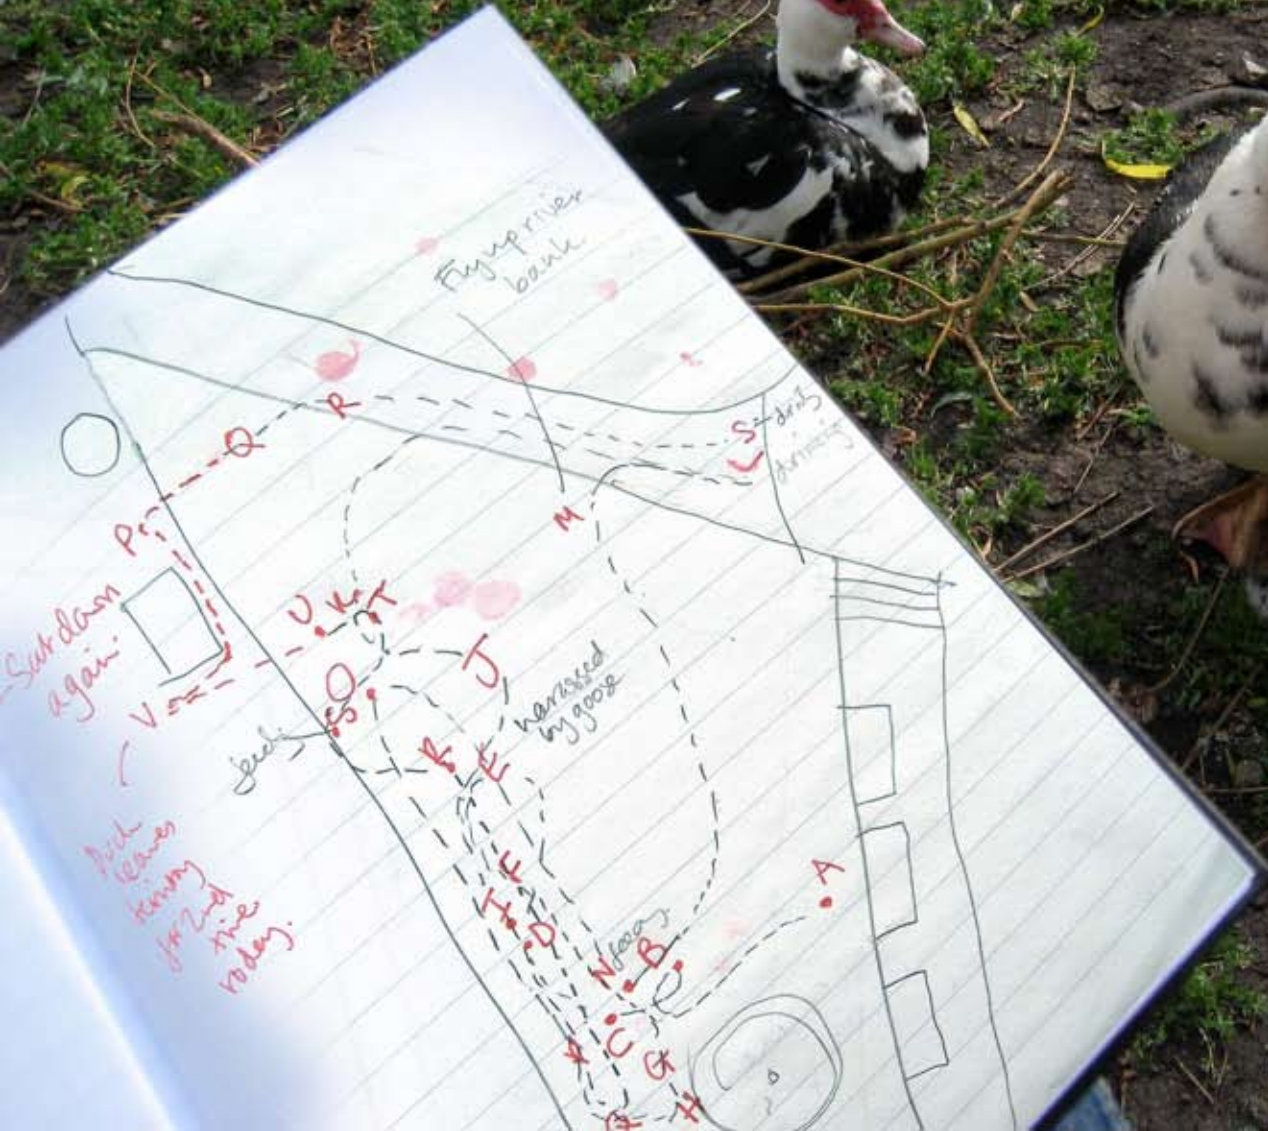 Fly up river
bank.
R
Q
S = drink
L drinking
P
M
U K T
- Sat down
again
V = =
O
J
S
harassed
by goose
R
E
Duck
leaves
territory
for 2nd
time
today.
F
I
D
A
feeding
N B
C
G
H